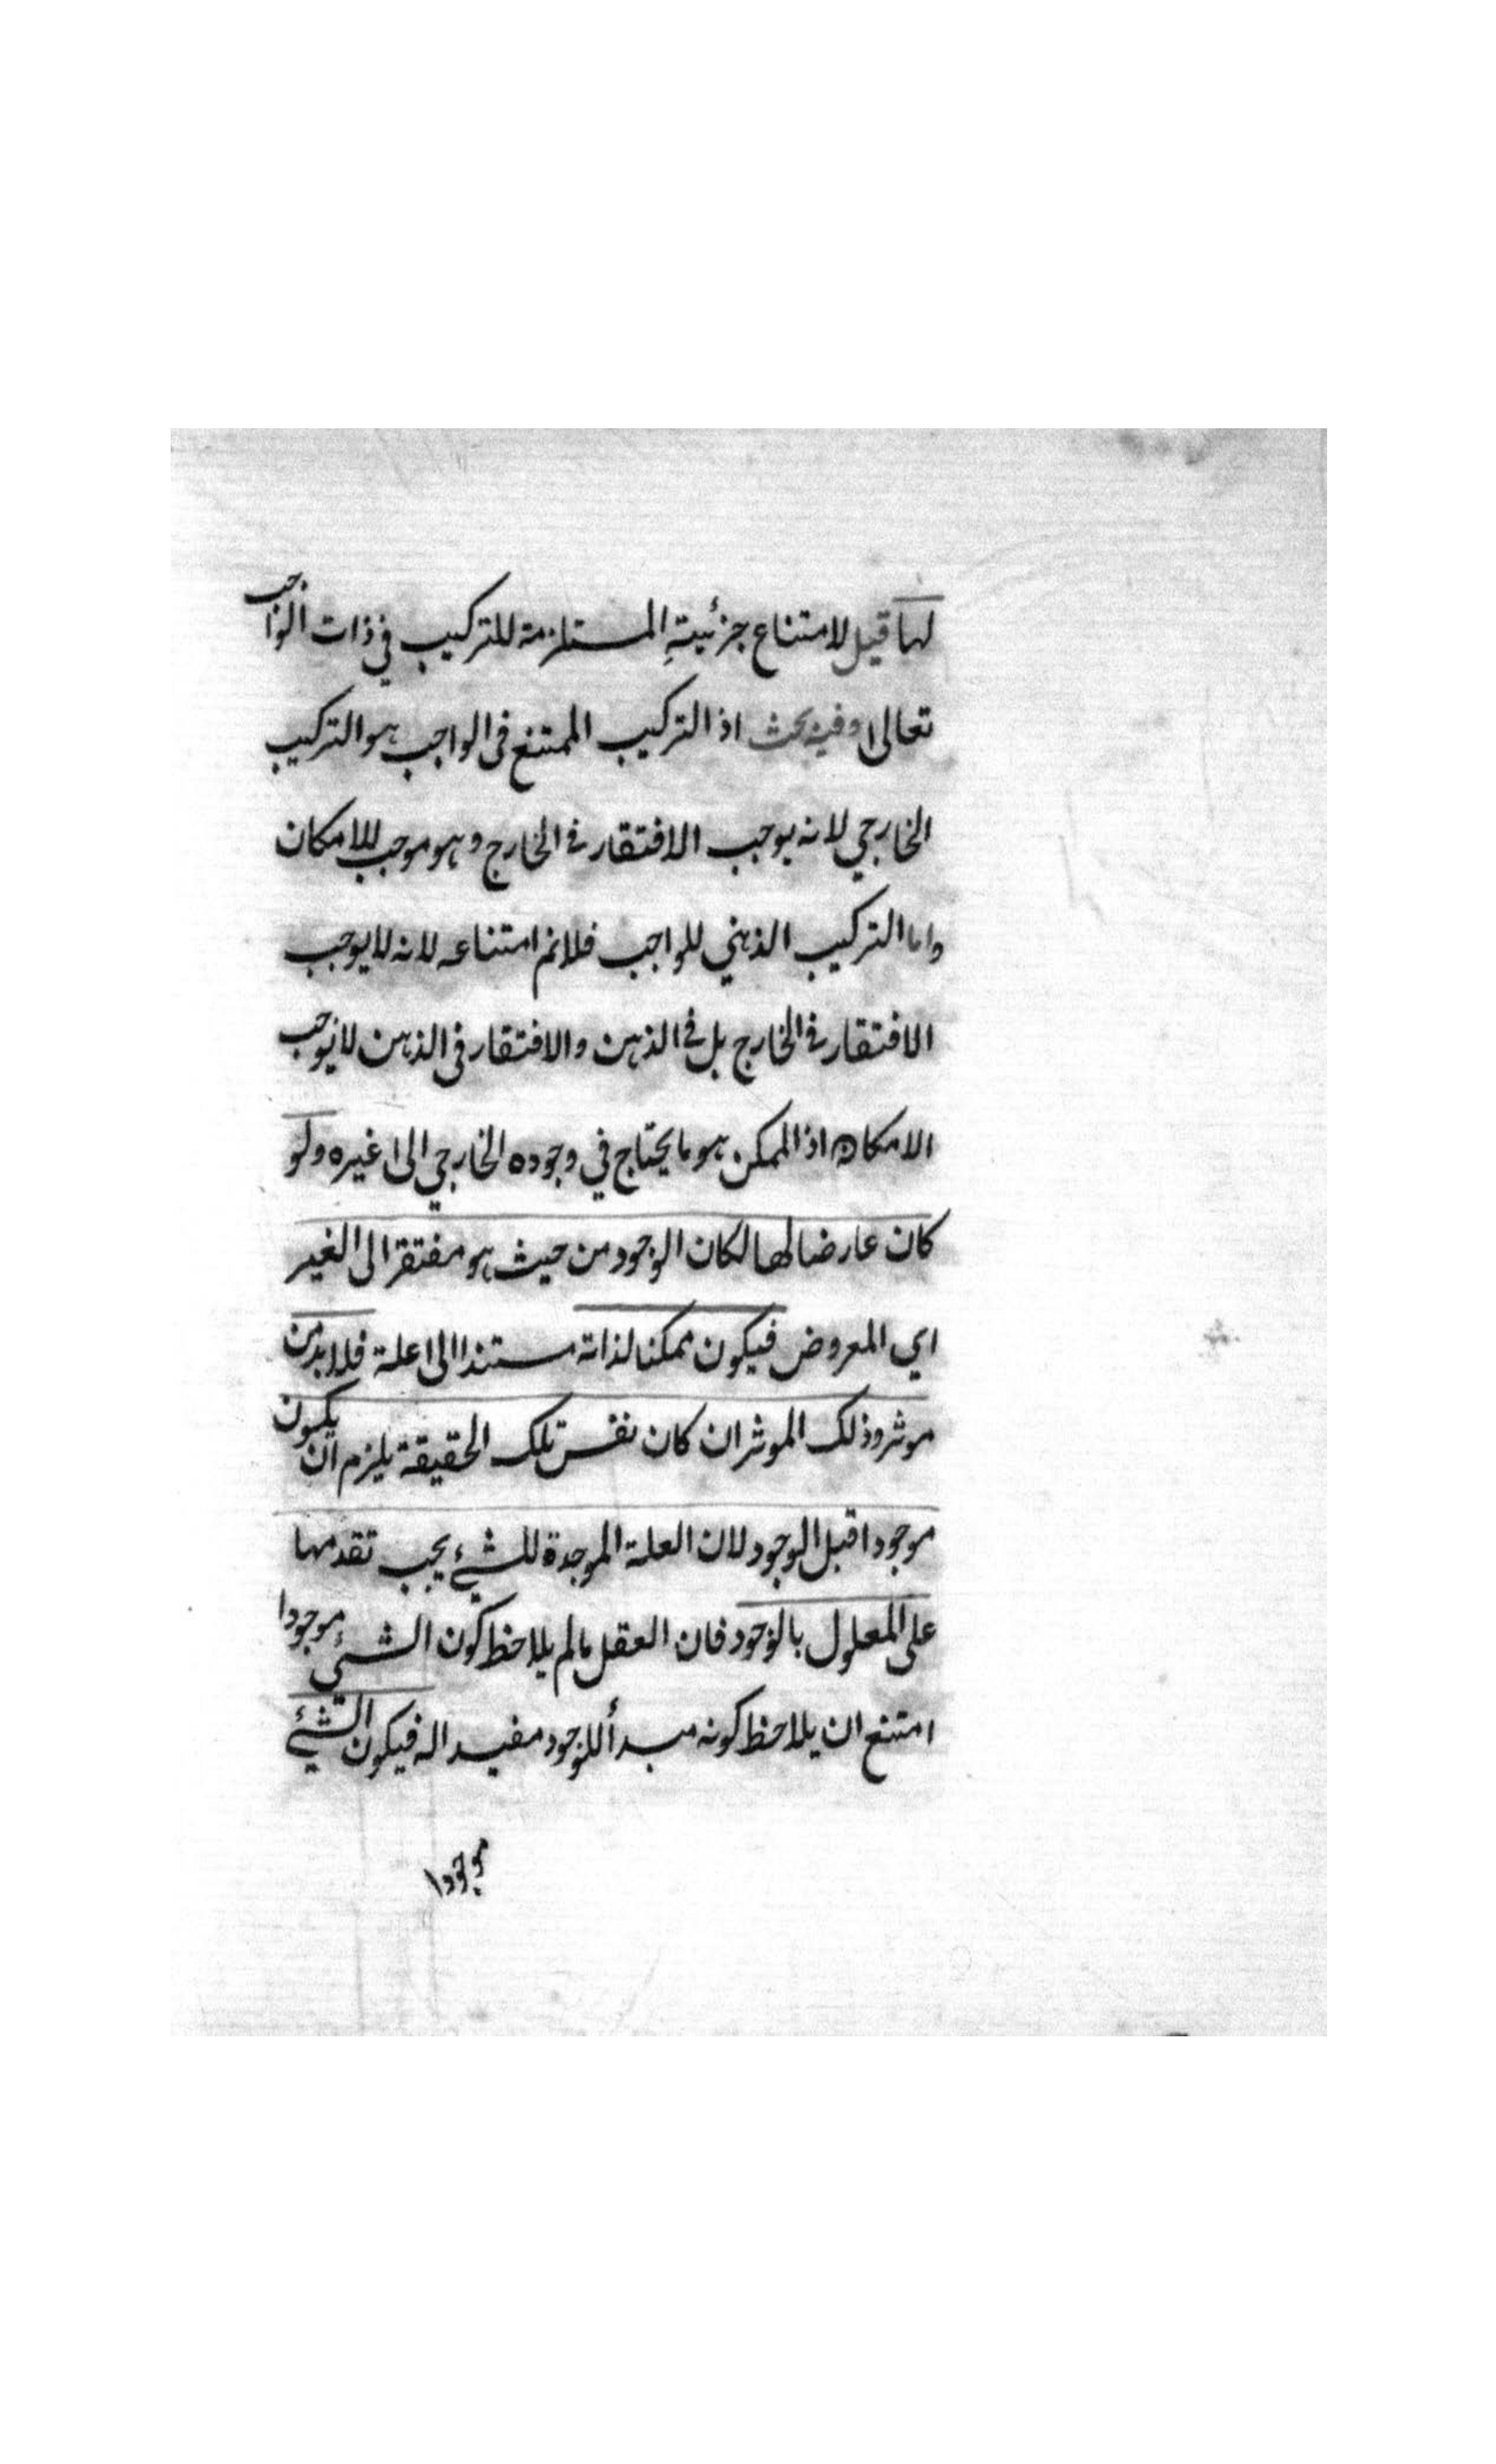 لها قيل لامتناع جزئيته المستلزمة للتركيب في ذات الواجب
تعالى وفيه بحث اذ التركيب الممتنع في الواجب هو التركيب
الخارجي لانه يوجب الافتقار في الخارج وهو موجب للامكان
واما التركيب الذهني للواجب فلانم امتناعه لانه لا يوجب
الافتقار في الخارج بل في الذهن والافتقار في الذهن لا يوجب
الامكان اذ الممكن هو ما يحتاج في وجوده الخارجي الى غيره ولو
كان عارضا لها لكان الوجود من حيث هو مفتقرا الى الغير
اي المعروض فيكون ممكنا لذاته مستندا الى علة فلا بد من
موثر وذلك الموثر ان كان نفس تلك الحقيقة يلزم ان يكون
موجودا قبل الوجود لان العلة الموجدة للشيء يجب تقدمها
على المعلول بالوجود فان العقل ما لم يلاحظ كون الشئ موجودا
امتنع ان يلاحظ كونه مبدأ للوجود مفيدا له فيكون الشئ
موجودا